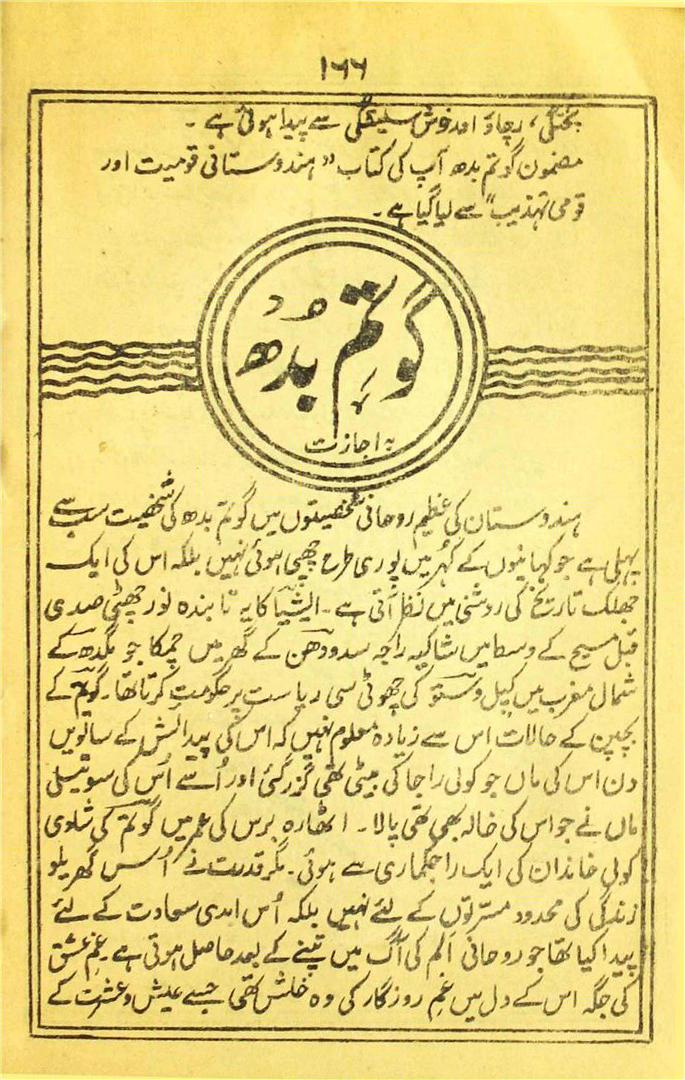 ۱۶۶
پختگی، رچاؤ اور خوش سلیقگی سے پیدا ہوئی ہے۔
مضمون گوتم بدھ آپ کی کتاب "ہندوستانی قومیت اور
قومی تہذیب" سے لیا گیا ہے۔
گوتم بُدھ
بہ اجازت
ہندوستان کی عظیم روحانی شخصیتوں میں گوتم بدھ کی شخصیت سب سے
پہلی ہے جو کہانیوں کے کہُر میں پوری طرح چھپی ہوئی نہیں بلکہ اس کی ایک
جھلک تاریخ کی روشنی میں نظر آتی ہے۔ ایشیا کا یہ تابندہ نور چھٹی صدی
قبل مسیح کے وسط میں شاکیہ راجہ سدودھن کے گھر میں چمکا جو مگدھ کے
شمال مغرب میں کپل وستو کی چھوٹی سی ریاست پر حکومت کرتا تھا۔ گوتم کے
بچپن کے حالات اس سے زیادہ معلوم نہیں کہ اس کی پیدائش کے ساتویں
دن اس کی ماں جو کولی راجا کی بیٹی تھی گزر گئی اور اُسے اُس کی سوتیلی
ماں نے جو اس کی خالہ بھی تھی پالا۔ اٹھارہ برس کی عمر میں گوتم کی شادی
کولی خاندان کی ایک راجکماری سے ہوئی۔ مگر قدرت نے اُس گھریلو
زندگی کی محدود مسرتوں کے لئے نہیں بلکہ اُس ابدی سعادت کے لئے
پیدا کیا تھا جو روحانی اَلم کی آگ میں تپنے کے بعد حاصل ہوتی ہے۔ غمِ عشق
کی جگہ اس کے دل میں غمِ روزگار کی وہ خلش تھی جسے عیش و عشرت کے